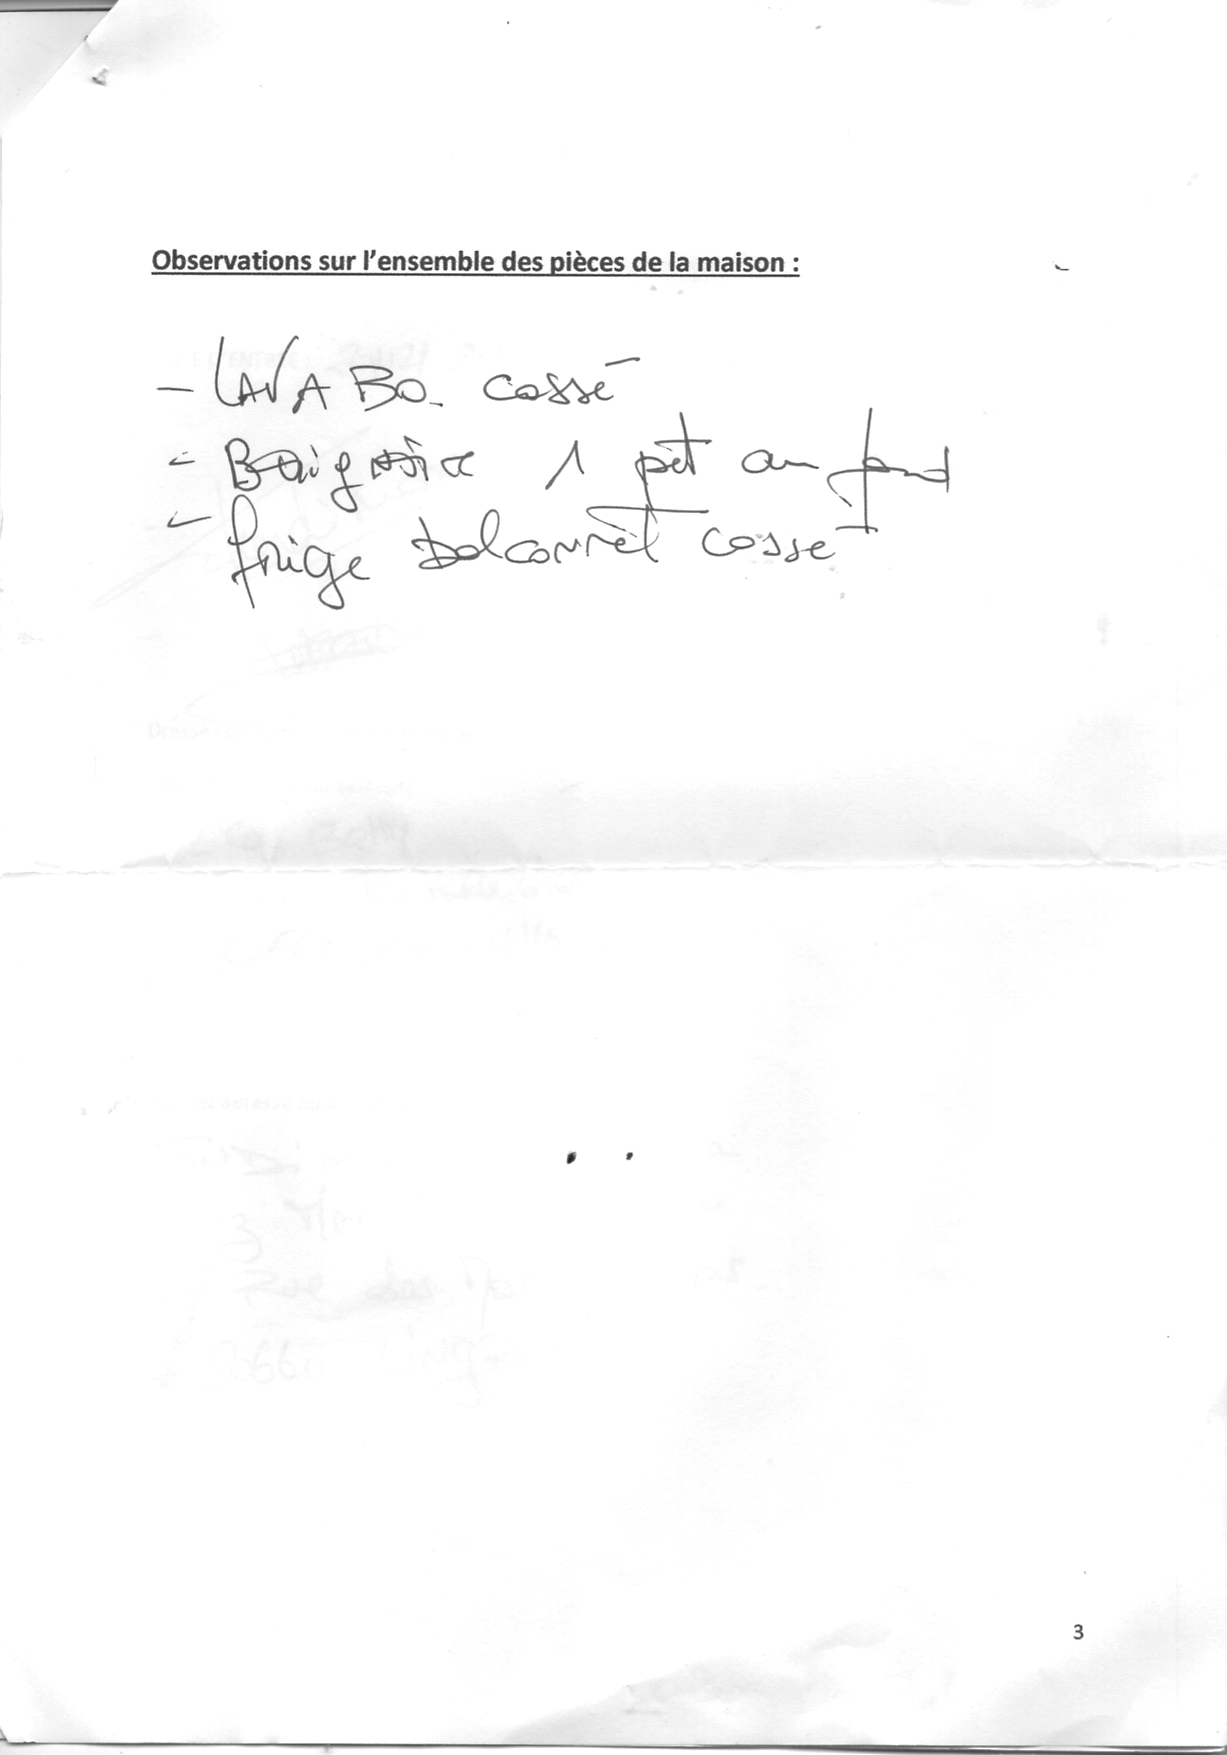 Observations sur l'ensemble des pièces de la maison :
- LAVABO cassé
- Baignoire 1 pèt au fond
- frige balconnet cassé
3